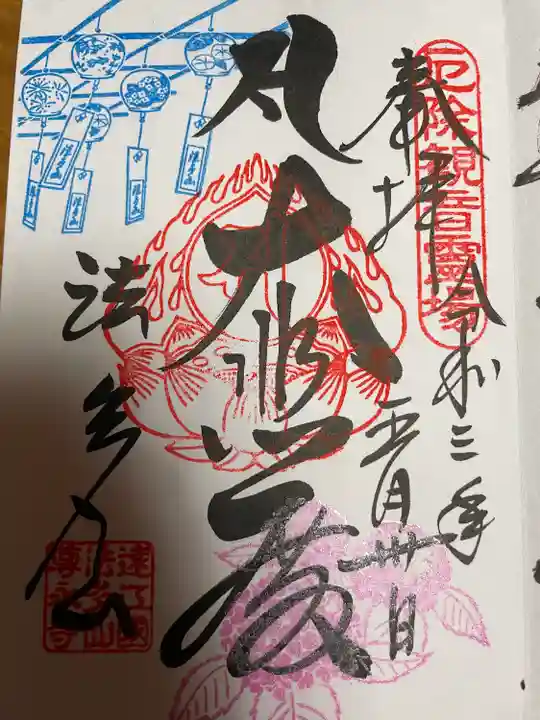 厄除観音霊場
奉拝 令和三年
五月卅日
大悲
法多山
遠江國
法多山
尊永寺